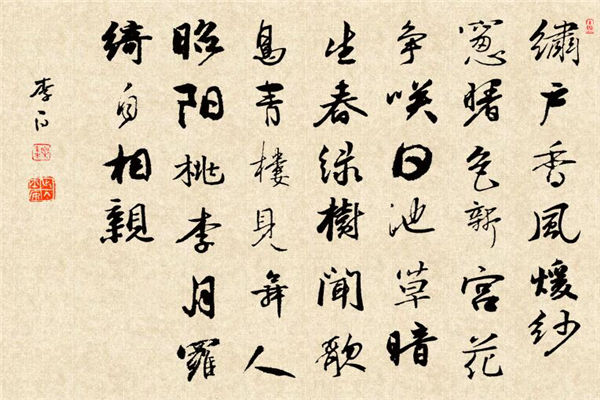 繡戶香風煖紗
窻曙色新宮花
争咲日池草暗
生春綠樹聞歌
鳥青樓見舞人
昭阳桃李月羅
綺自相親
李白